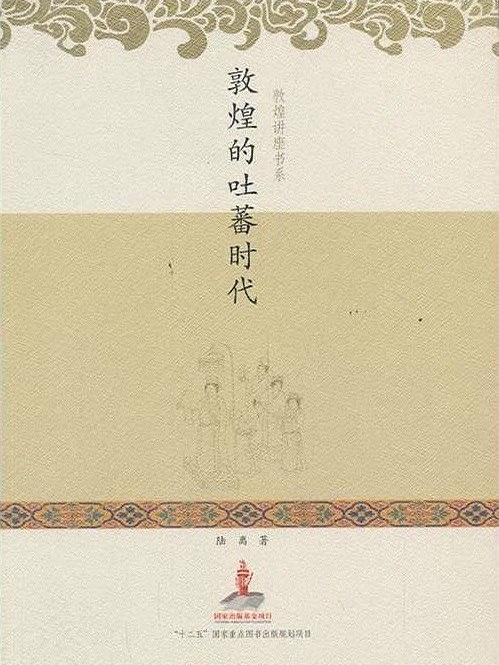 敦煌讲座书系
敦煌的吐蕃时代
陆离著
国家出版基金项目
“十二五”国家重点图书出版规划项目